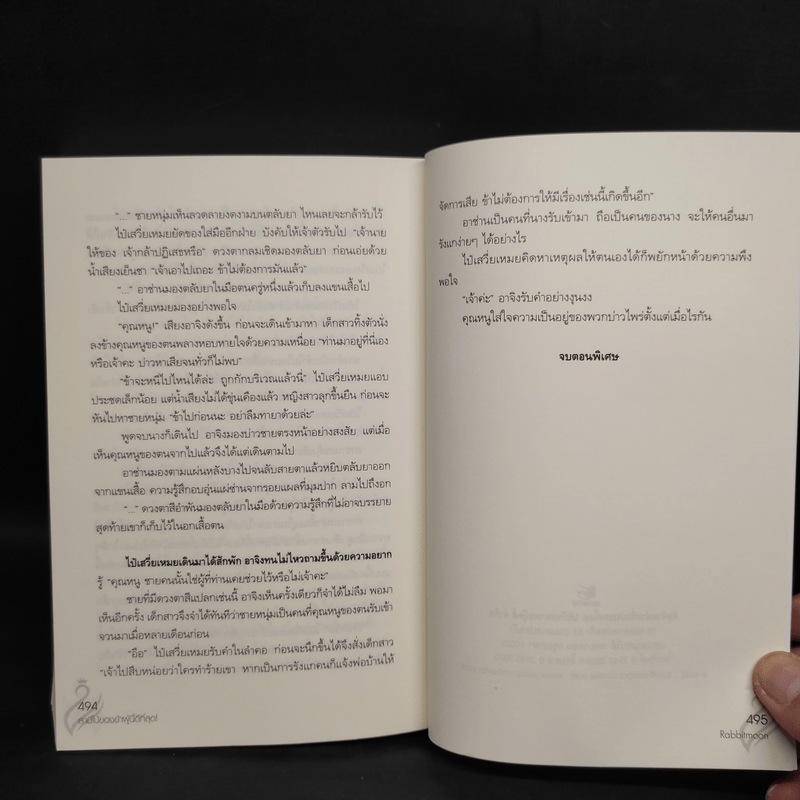 "..." ชายหนุ่มเห็นลวดลายงดงามบนตลับยา ไหนเลยจะกล้ารับไว้
ไป๋เสวี่ยเหมยยัดของใส่มืออีกฝ่าย บังคับให้เจ้าตัวรับไป "เจ้านาย
ให้ของ เจ้ากล้าปฏิเสธหรือ" ดวงตากลมเชิดมองตลับยา ก่อนเอ่ยด้วย
น้ำเสียงเย็นชา "เจ้าเอาไปเถอะ ข้าไม่ต้องการมันแล้ว"
"..." อาซ่านมองตลับยาในมือตนครู่หนึ่งแล้วเก็บลงแขนเสื้อไป
ไป๋เสวี่ยเหมยมองอย่างพอใจ
"คุณหนู!" เสียงอาจิงดังขึ้น ก่อนจะเดินเข้ามาหา เด็กสาวทิ้งตัวนั่ง
ลงข้างคุณหนูของตนพลางหอบหายใจด้วยความเหนื่อย "ท่านมาอยู่ที่นี่เอง
หรือเจ้าคะ บ่าวหาเสียจนทั่วก็ไม่พบ"
"ข้าจะหนีไปไหนได้ล่ะ ถูกกักบริเวณแล้วนี่" ไป๋เสวี่ยเหมยแอบ
ประชดเล็กน้อย แต่น้ำเสียงไม่ได้ขุ่นเคืองแล้ว หญิงสาวลุกขึ้นยืน ก่อนจะ
หันไปหาชายหนุ่ม "ข้าไปก่อนนะ อย่าลืมทายาด้วยล่ะ"
พูดจบนางก็เดินไป อาจิงมองบ่าวชายตรงหน้าอย่างสงสัย แต่เมื่อ
เห็นคุณหนูของตนจากไปแล้วจึงได้แต่เดินตามไป
อาซ่านมองตามแผ่นหลังบางไปจนลับสายตาแล้วหยิบตลับยาออก
จากแขนเสื้อ ความรู้สึกอบอุ่นแผ่ซ่านจากรอยแผลที่มุมปาก ลามไปถึงอก
"..." ดวงตาสีอำพันมองตลับยาในมือด้วยความรู้สึกที่ไม่อาจบรรยาย
สุดท้ายเขาก็เก็บไว้ในอกเสื้อตน
ไป๋เสวี่ยเหมยเดินมาได้สักพัก อาจิงทนไม่ไหวถามขึ้นด้วยความอยาก
รู้ "คุณหนู ชายคนนั้นใช่ผู้ที่ท่านเคยช่วยไว้หรือไม่เจ้าคะ"
ชายที่มีดวงตาสีแปลกเช่นนี้ อาจิงเห็นครั้งเดียวก็จำได้ไม่ลืม พอมา
เห็นอีกครั้ง เด็กสาวจึงจำได้ทันทีว่าชายหนุ่มเป็นคนที่คุณหนูของตนรับเข้า
จวนมาเมื่อหลายเดือนก่อน
"อือ" ไป๋เสวี่ยเหมยรับคำในลำคอ ก่อนจะนึกขึ้นได้จึงสั่งเด็กสาว
"เจ้าไปสืบหน่อยว่าใครทำร้ายเขา หากเป็นการรังแกคนก็แจ้งพ่อบ้านให้
494
สามีของข้าผู้นี้ดีที่สุด!
จัดการเสีย ข้าไม่ต้องการให้มีเรื่องเช่นนี้เกิดขึ้นอีก"
อาซ่านเป็นคนที่นางรับเข้ามา ถือเป็นคนของนาง จะให้คนอื่นมา
รังแกง่ายๆ ได้อย่างไร
ไป๋เสวี่ยเหมยคิดหาเหตุผลให้ตนเองได้ก็พยักหน้าด้วยความพึง
พอใจ
"เจ้าค่ะ" อาจิงรับคำอย่างงุนงง
คุณหนูใส่ใจความเป็นอยู่ของพวกบ่าวไพร่ตั้งแต่เมื่อไรกัน
จบตอนพิเศษ
495
Rabbitmoon